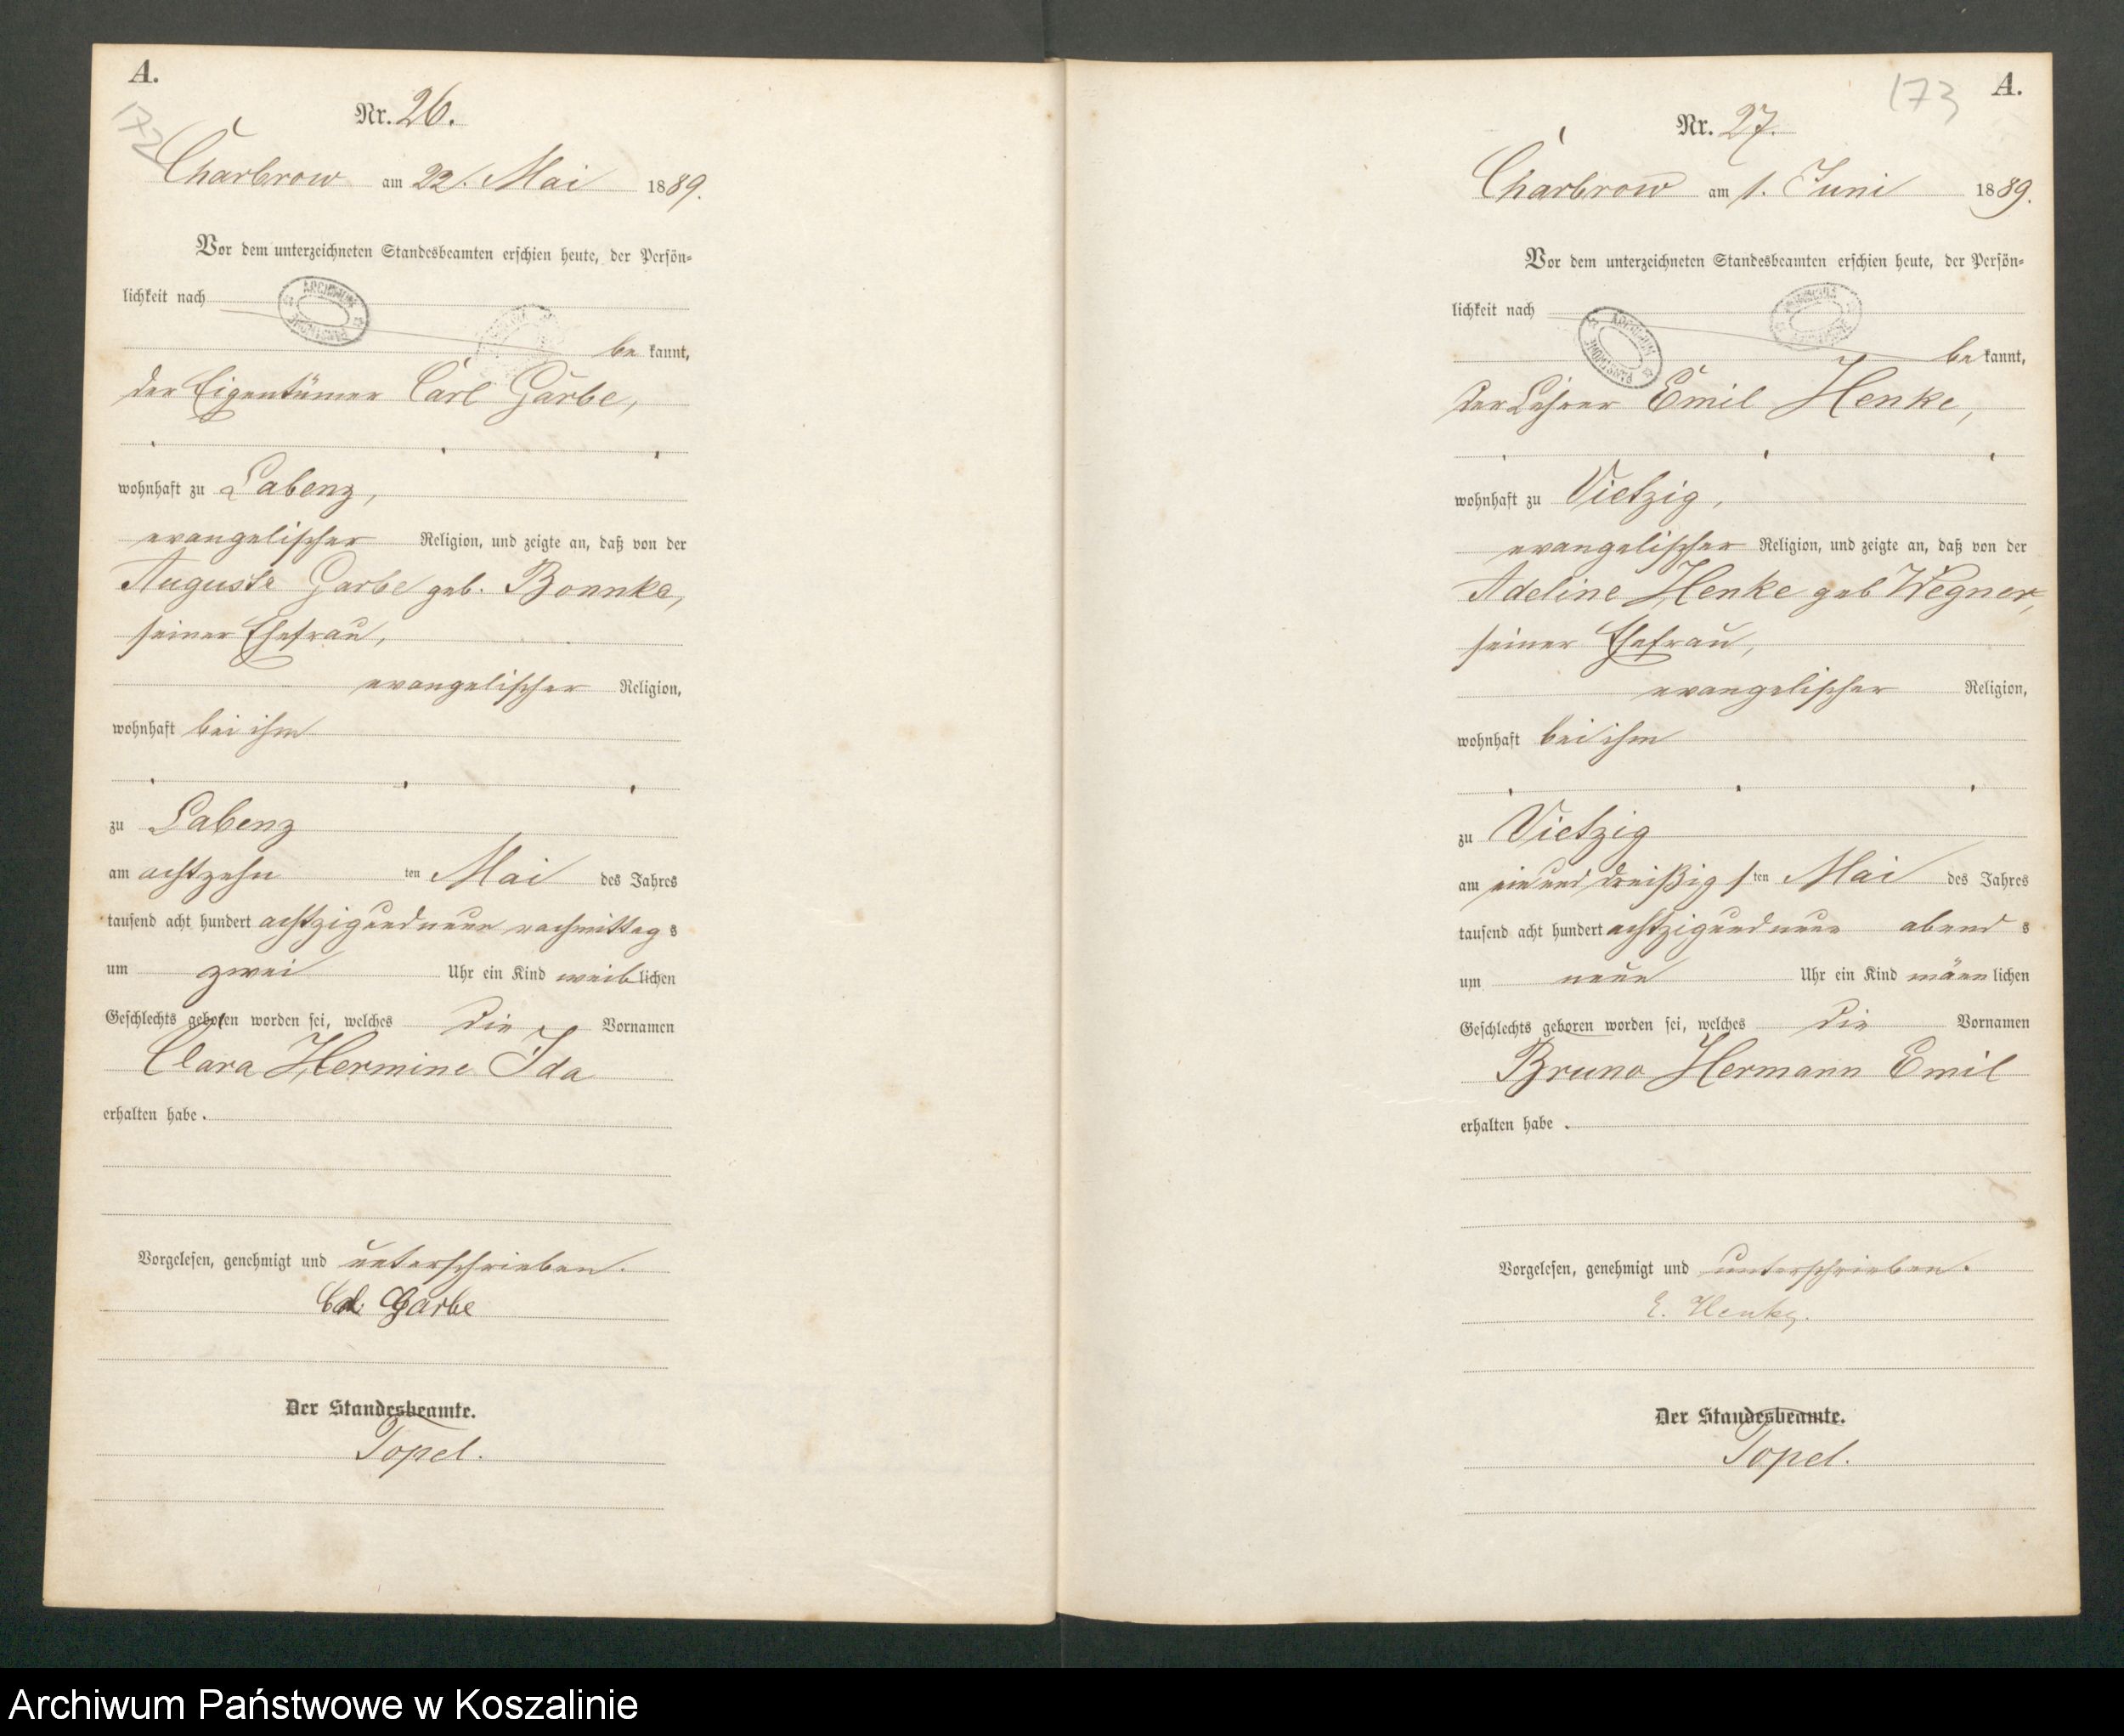 A.
172
Nr. 26.
Charbrow am 22. Mai 1889.
Vor dem unterzeichneten Standesbeamten erschien heute, der Persön-
lichkeit nach
be kannt,
der Eigentümer Carl Garbe,
wohnhaft zu Labenz,
evangelischer Religion, und zeigte an, daß von der
Auguste Garbe geb. Bonnke,
seiner Ehefrau,
evangelischer Religion,
wohnhaft bei ihm
zu Labenz
am achtzehn ten Mai des Jahres
tausend acht hundert achtzigundneun nachmittag s
um zwei Uhr ein Kind weiblichen
Geschlechts geboren worden sei, welches die Vornamen
Clara Hermine Ida
erhalten habe.
Vorgelesen, genehmigt und unterschrieben.
Garbe
Der Standesbeamte.
Topel.
173
A.
Nr. 27.
Charbrow am 1. Juni 1889.
Vor dem unterzeichneten Standesbeamten erschien heute, der Persön-
lichkeit nach
be kannt,
der Lehrer Emil Henke,
wohnhaft zu Vietzig,
evangelischer Religion, und zeigte an, daß von der
Adeline Henke geb Wegner,
seiner Ehefrau,
evangelischer Religion,
wohnhaft bei ihm
zu Vietzig
am einunddreißigsten Mai des Jahres
tausend acht hundert achtzigundneun abend s
um neun Uhr ein Kind männlichen
Geschlechts geboren worden sei, welches die Vornamen
Bruno Hermann Emil
erhalten habe.
Vorgelesen, genehmigt und unterschrieben.
E. Henke.
Der Standesbeamte.
Topel.
Archiwum Państwowe w Koszalinie